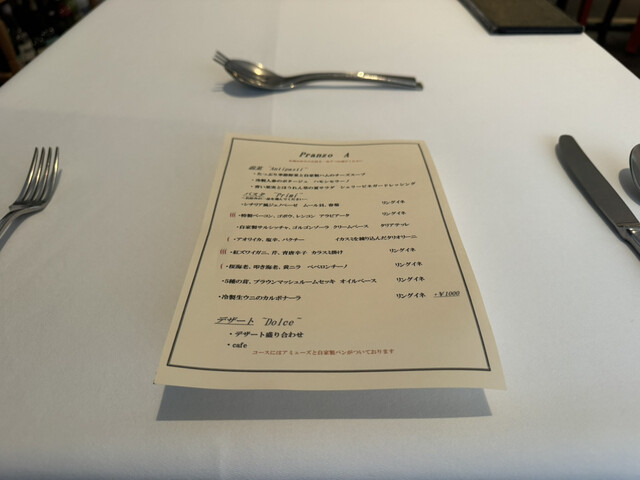 Pranzo A
前菜 ~Antipasti~
・たっぷり季節野菜と自家製ハムのチーズスープ
・冷製人参のポタージュ ハモンセラーノ
パスタ ~Primi~
リングイネ
・特製ベーコン、ゴボウ、レンコン アラビアータ リングイネ
・自家製サルシッチャ、ゴルゴンゾーラ クリームソース タリアテッレ
・アオリイカ、塩辛、バクチー イカスミを練り込んだタリオリーニ
・紅ズワイガニ、芹、青唐辛子 カラスミ掛け リングイネ
・桜海老、叩き海老、黄ニラ ペペロンチーノ リングイネ
・5種の茸、ブラウンマッシュルームセッキ オイルベース リングイネ
・冷製生ウニのカルボナーラ リングイネ +¥1000
デザート ~Dolce~
・デザート盛り合わせ
・cafe
コースにはアミューズと自家製パンがついております